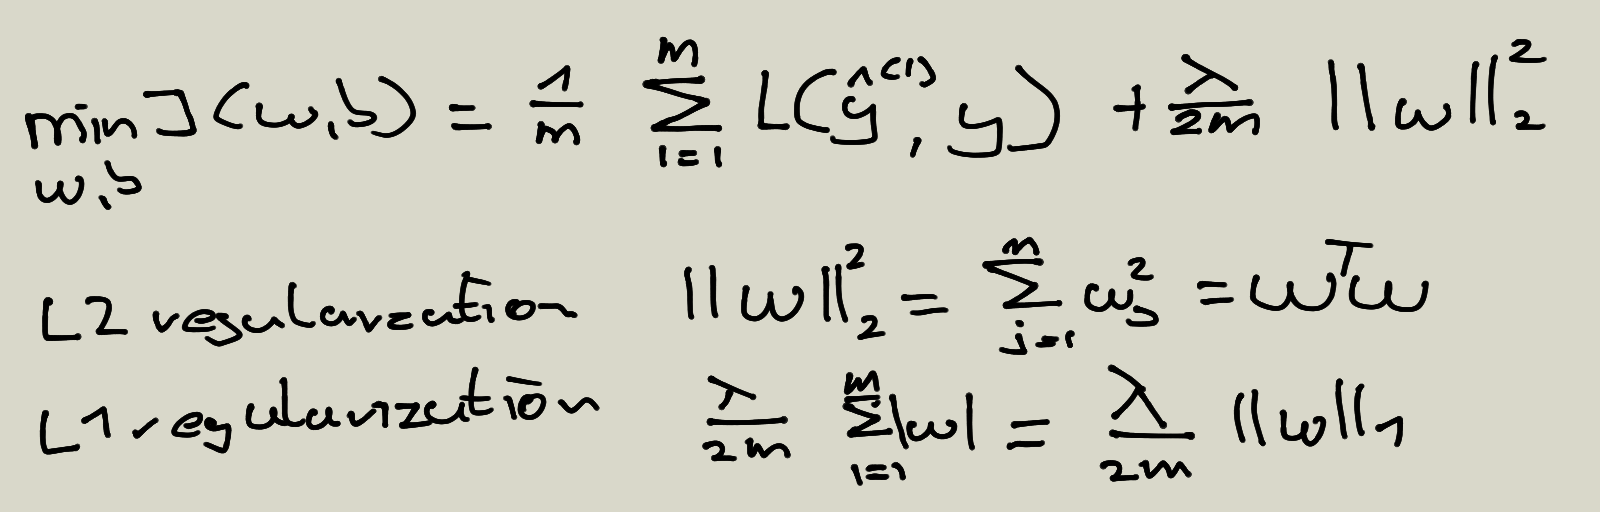 min J(w,b) = 1/m ∑_{i=1}^{m} L(ŷ^{(1)}, y) + λ/2m ||w||_2^2
w,b
L2 regularization ||w||_2^2 = ∑_{j=1}^{n} w_j^2 = w^T w
L1 regularization λ/2m ∑_{i=1}^{m} |w| = λ/2m ||w||_1